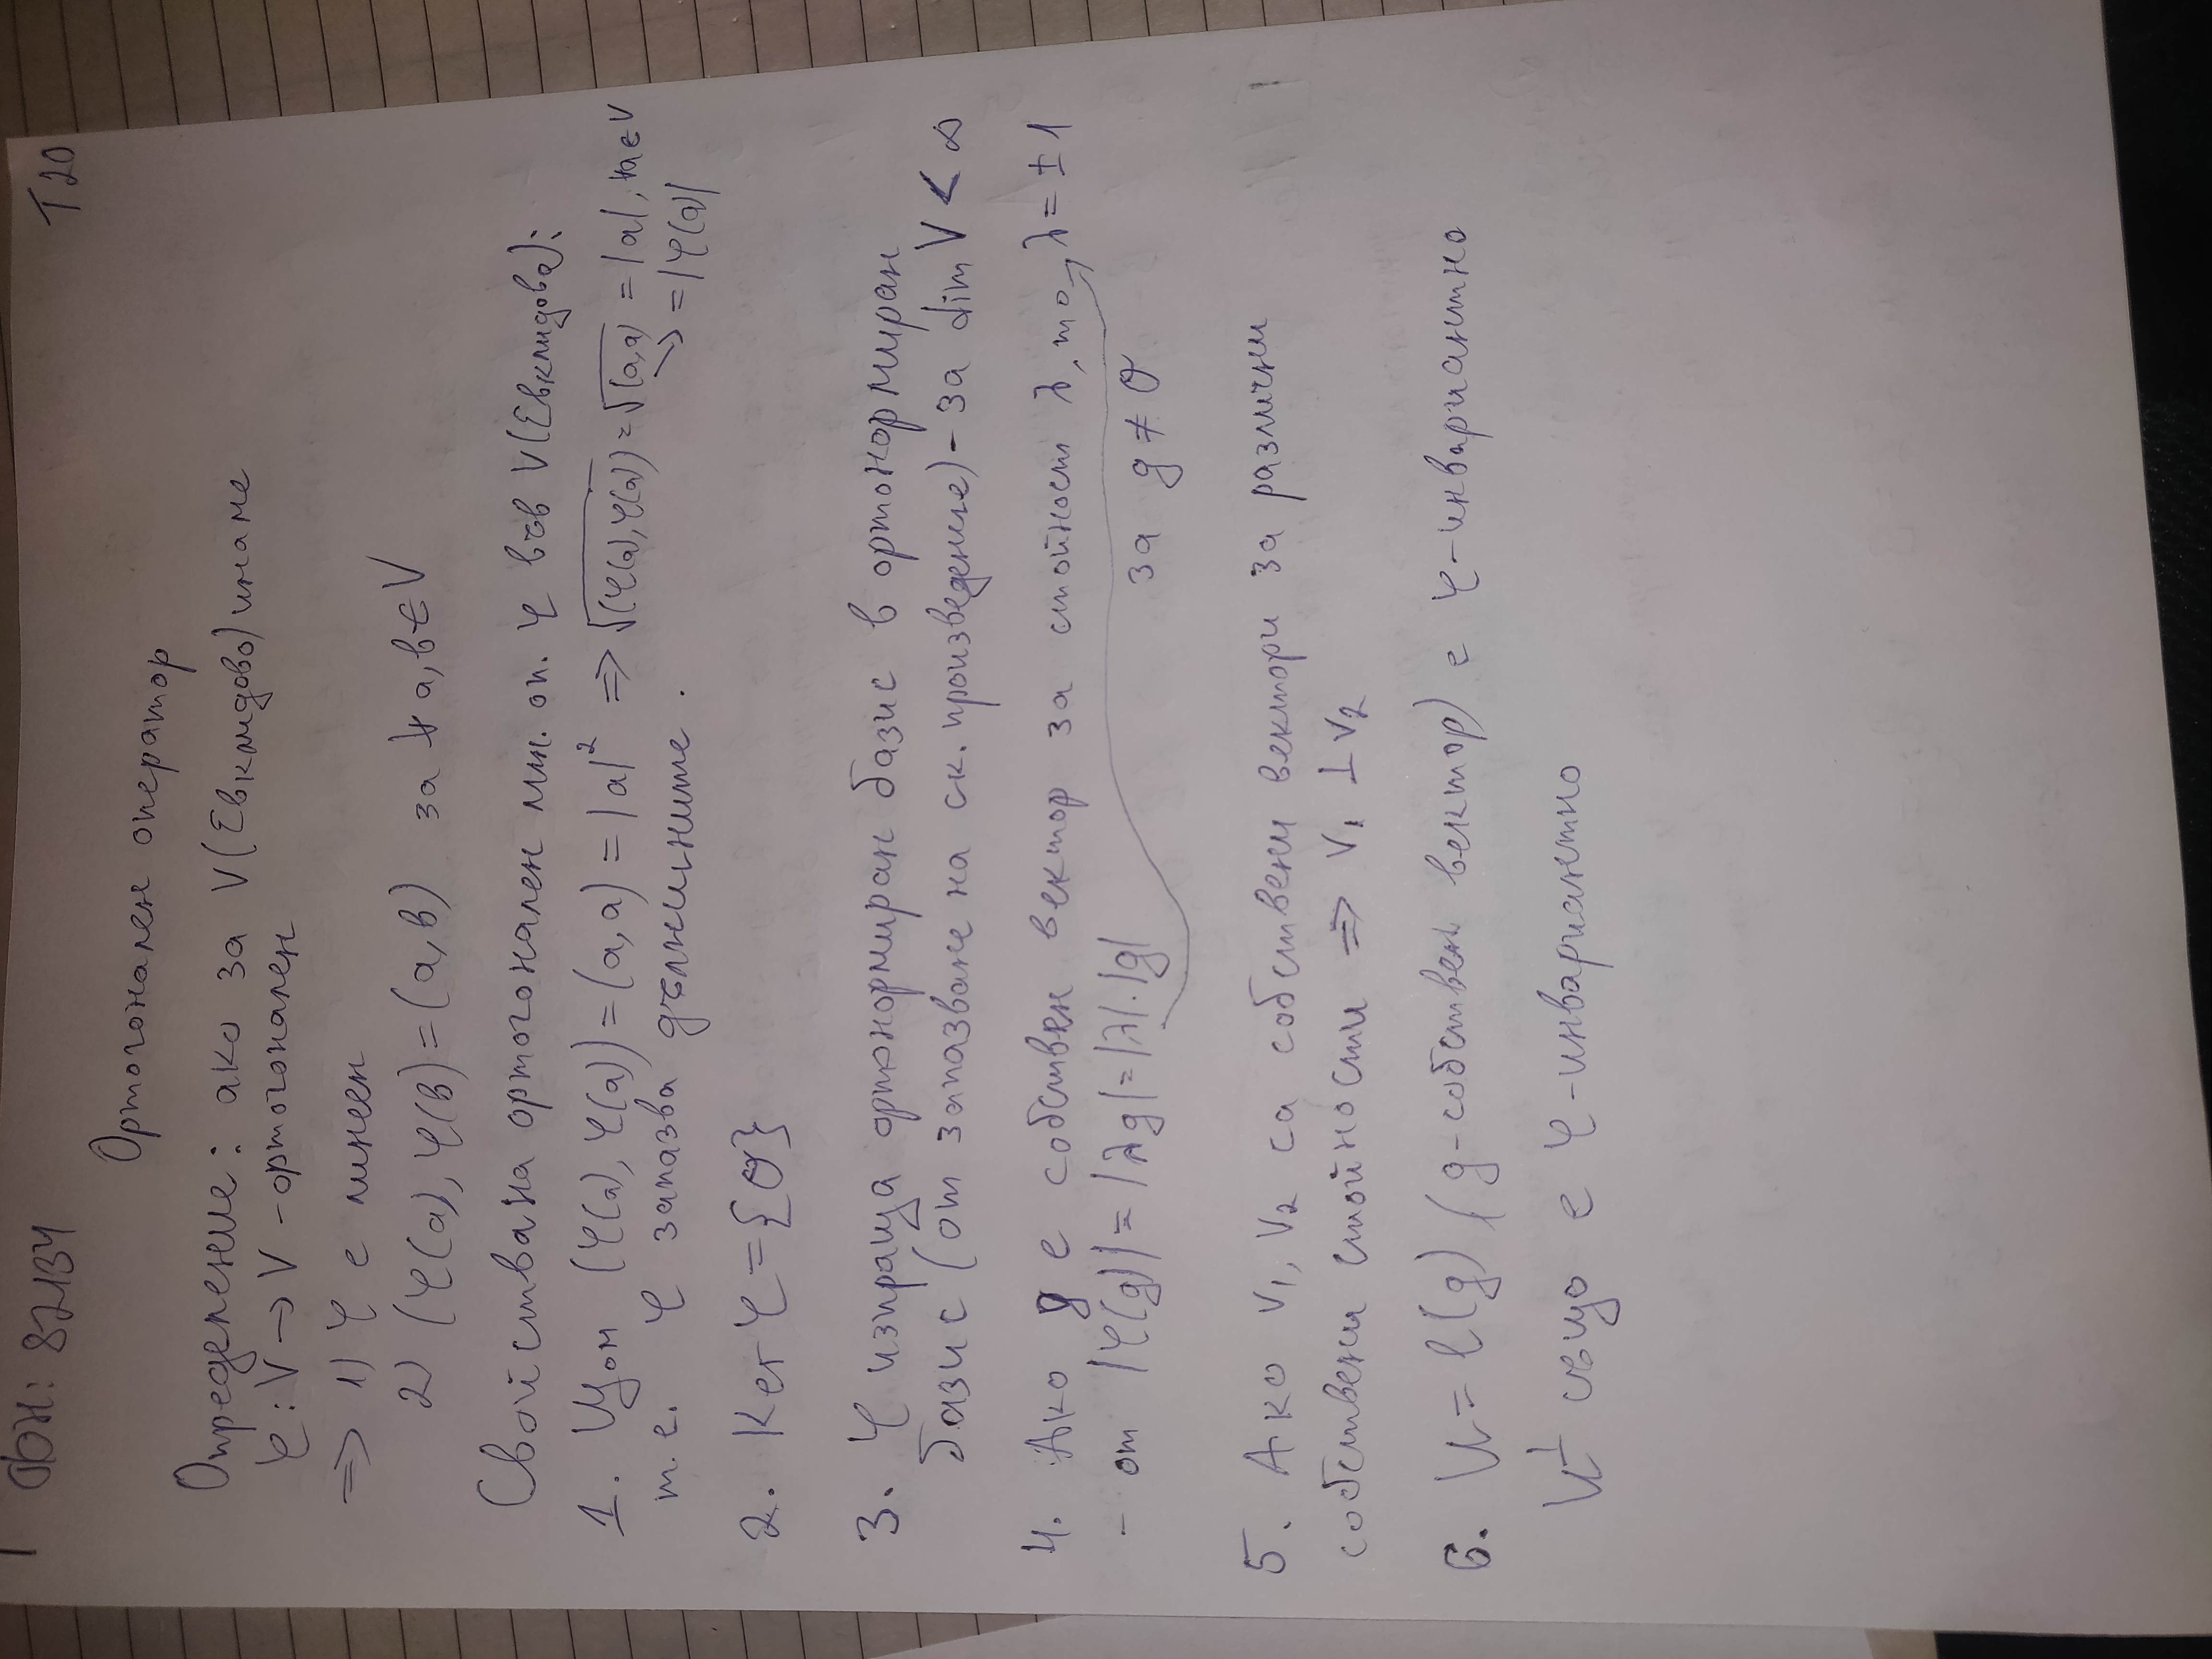 ФН: 82134
T20
Ортогонален оператор
Определение: ако за V(Евклидово) имаме
φ: V → V - ортогонален
⇒ 1) φ е линеен
2) (φ(a), φ(b) = (a, b) за ∀ a, b ∈ V
Свойства на ортогонален лин. оп. φ във V(Евклидова):
1. Щом (φ(a), φ(a)) = (a, a) = |a|² ⇒ √(φ(a), φ(a)) = √(a, a) = |a|, ∀a ∈ V
т. е. φ запазва дължините. ↘ = |φ(a)|
2. Ker φ = {θ}
3. φ изпраща ортонормиран базис в ортонормиран
базис (от запазване на ск. произведение) - за dim V < ∞
4. Ако g е собствен вектор за стойност λ, то λ = ± 1
- от |φ(g)| = |λg| = |λ|.|g| за g ≠ θ
5. Ако v₁, v₂ са собствени вектори за различни
собствени стойности ⇒ v₁ ⊥ v₂
6. U = l(g) (g-собствен вектор) е φ-инвариантно
U⊥ също е φ-инвариантно